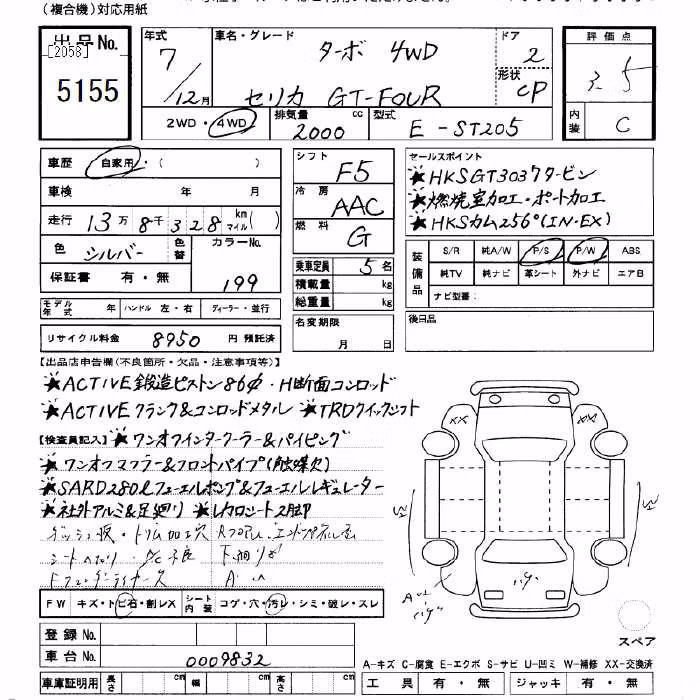 (複合機)対応用紙
出品No.
[2058]
5155
年式 7 /12月
車名・グレード ターボ 4WD
セリカ GT-FOUR
ドア 2
形状 CP
評価点 3.5
内装 C
2WD・4WD
排気量 2000 cc
型式 E-ST205
車歴 自家用・( )
車検 年 月
走行 13万8千328 km マイル( )
色 シルバー 色替 カラーNo. 199
保証書 有・無
モデル年式 年 ハンドル 左・右 ディーラー・並行
リサイクル料金 8950 円 預託済
シフト F5
冷房 AAC
燃料 G
乗車定員 5 名
積載量 kg
総重量 kg
名変期限 月 日
セールスポイント
★HKSGT3037タービン
★燃焼室加工・ポート加工
★HKSカム256°(IN-EX)
装備品
S/R 純A/W P/S P/W ABS
純TV 純ナビ 革シート 外ナビ エアB
ナビ型番:
後日品
【出品店申告欄(不良箇所・欠品・注意事項等)】
★ACTIVE鍛造ピストン86φ・H断面コンロッド
★ACTIVEクランク&コンロッドメタル ★TRDクイックシフト
【検査員記入】★ワンオフインタークーラー&パイピング
★ワンオフマフラー&フロントパイプ(触媒欠)
★SARD280ℓフューエルポンプ&フューエルレギュレーター
★社外アルミ&足廻り ★レカロシート2脚
トリム加工穴
シート
FW キズ・トビ石・割レX シート内装 コゲ・穴・汚レ・シミ・破レ・スレ
登録No.
車台No. 0009832
車庫証明用 長さ cm 幅 cm 高さ cm
XX XX
スペア
A-キズ C-腐食 E-エクボ S-サビ U-凹ミ W-補修 XX-交換済
工具 有・無 ジャッキ 有・無